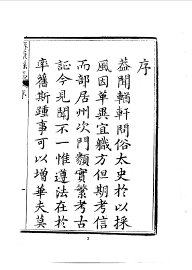 序
益聞輶軒問俗太史於以採
風因革異宜職方但期考信
而部居州次門類實繁考古
証今見聞不一惟遵法在於
率舊斯踵事可以增華夫莫